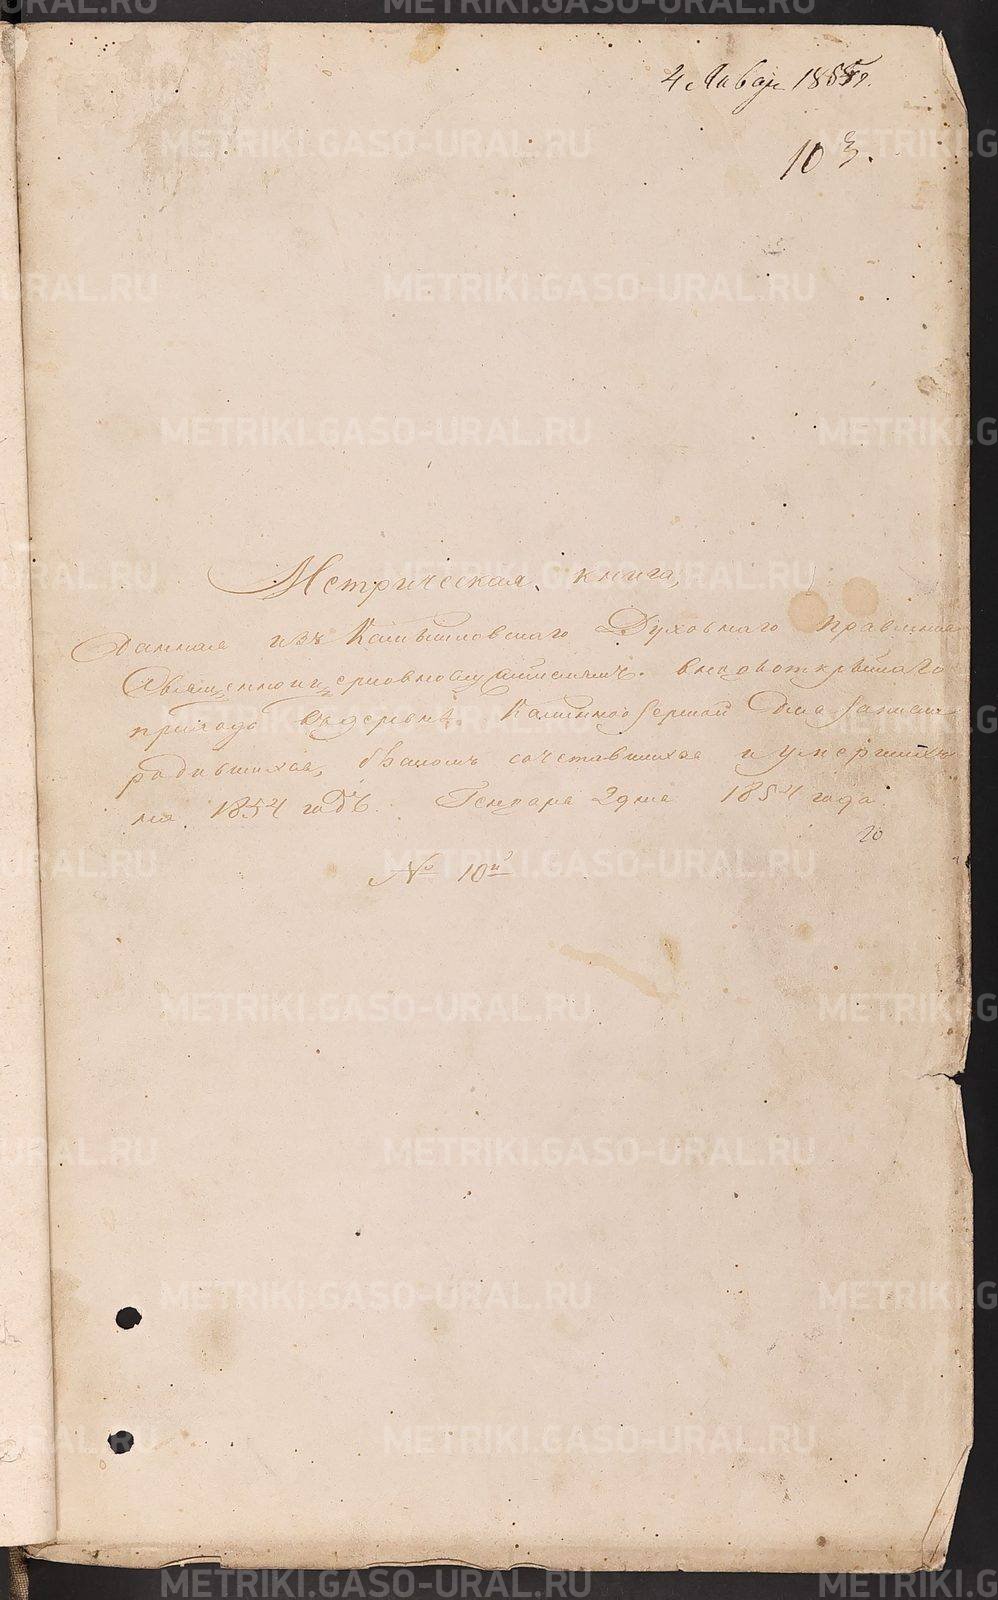 4 Январ 1855 г.
103.
Метрическая книга,
Данная изъ Камышловскаго Духовнаго Правления
Священно церковнослужителямъ. вновьоткрытаго
прихода въдеревнѣ. Калиновоозерной для записи
родившихся, бракомъ сочетавшихся и умершихъ
на 1854 годъ. Генваря 2 дня 1854 года
№ 10й
METRIKI.GASO-URAL.RU